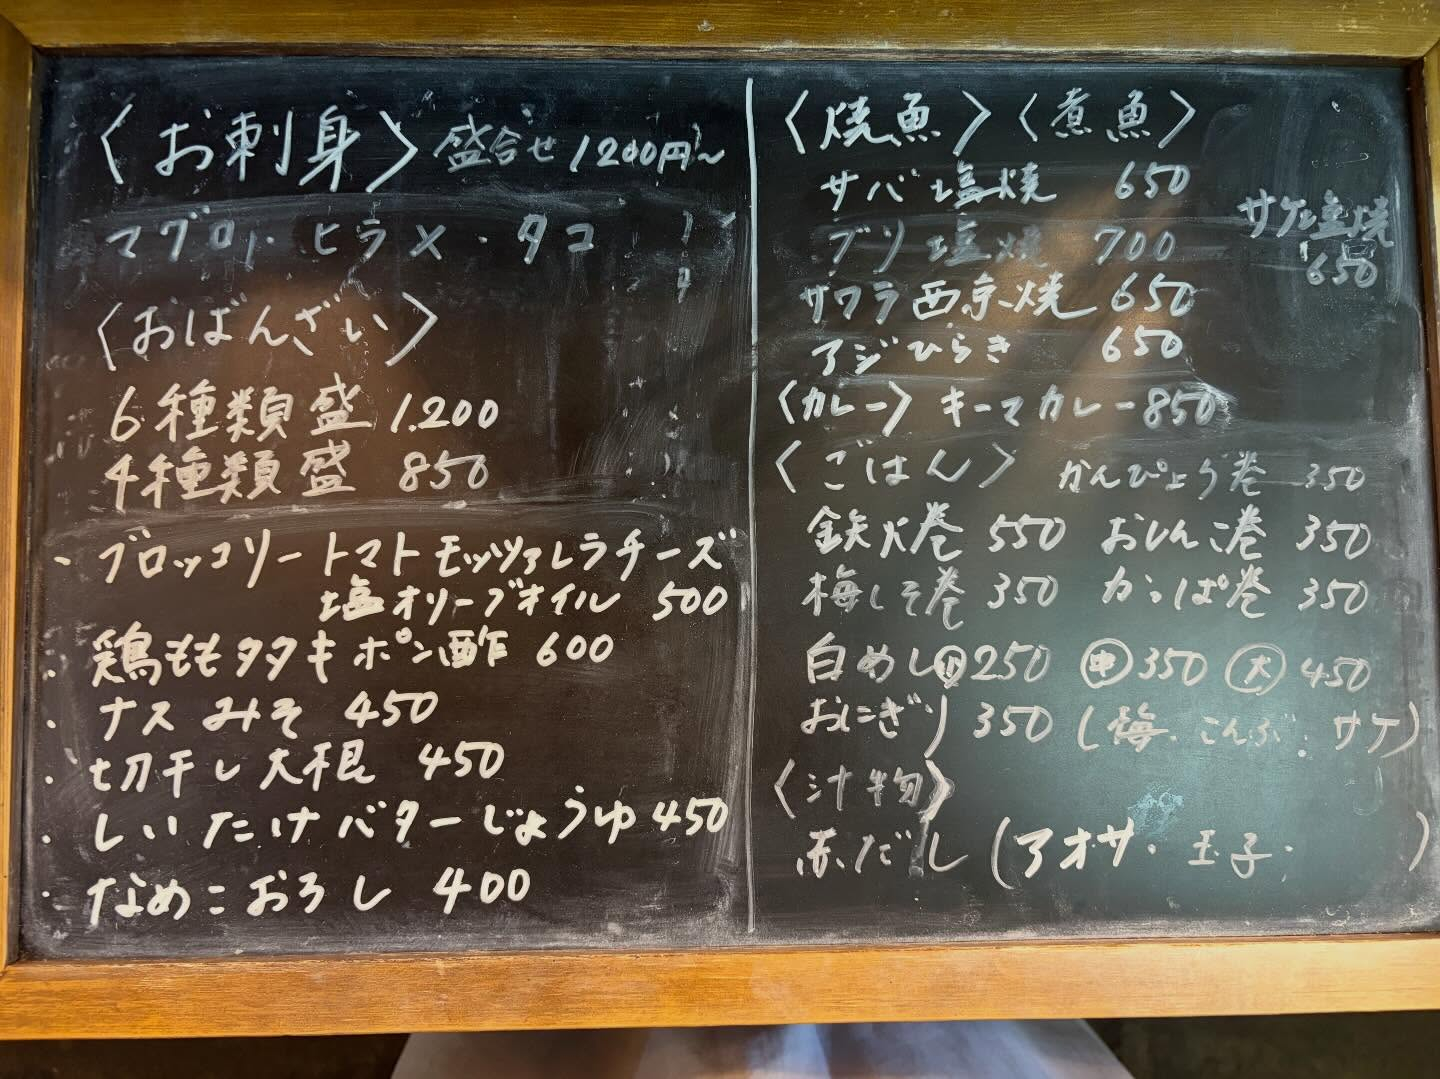 〈お刺身〉盛合せ1200円〜
マグロ・ヒラメ・タコ
〈おばんざい〉
6種類盛 1.200
4種類盛 850
・ブロッコリートマトモッツァレラチーズ
塩オリーブオイル 500
・鶏ももタタキポン酢 600
・ナスみそ 450
・切干し大根 450
・しいたけバターじょうゆ 450
・なめこおろし 400
〈焼魚〉〈煮魚〉
サバ塩焼 650
サケ塩焼
650
ブリ塩焼 700
サワラ西京焼 650
アジひらき 650
〈カレー〉キーマカレー 850
〈ごはん〉 かんぴょう巻 350
鉄火巻 550 おしんこ巻 350
梅しそ巻 350 かっぱ巻 350
白めし小250 中350 大450
おにぎり 350 (梅・こんぶ・サケ)
〈汁物〉
赤だし (アオサ・玉子・ )